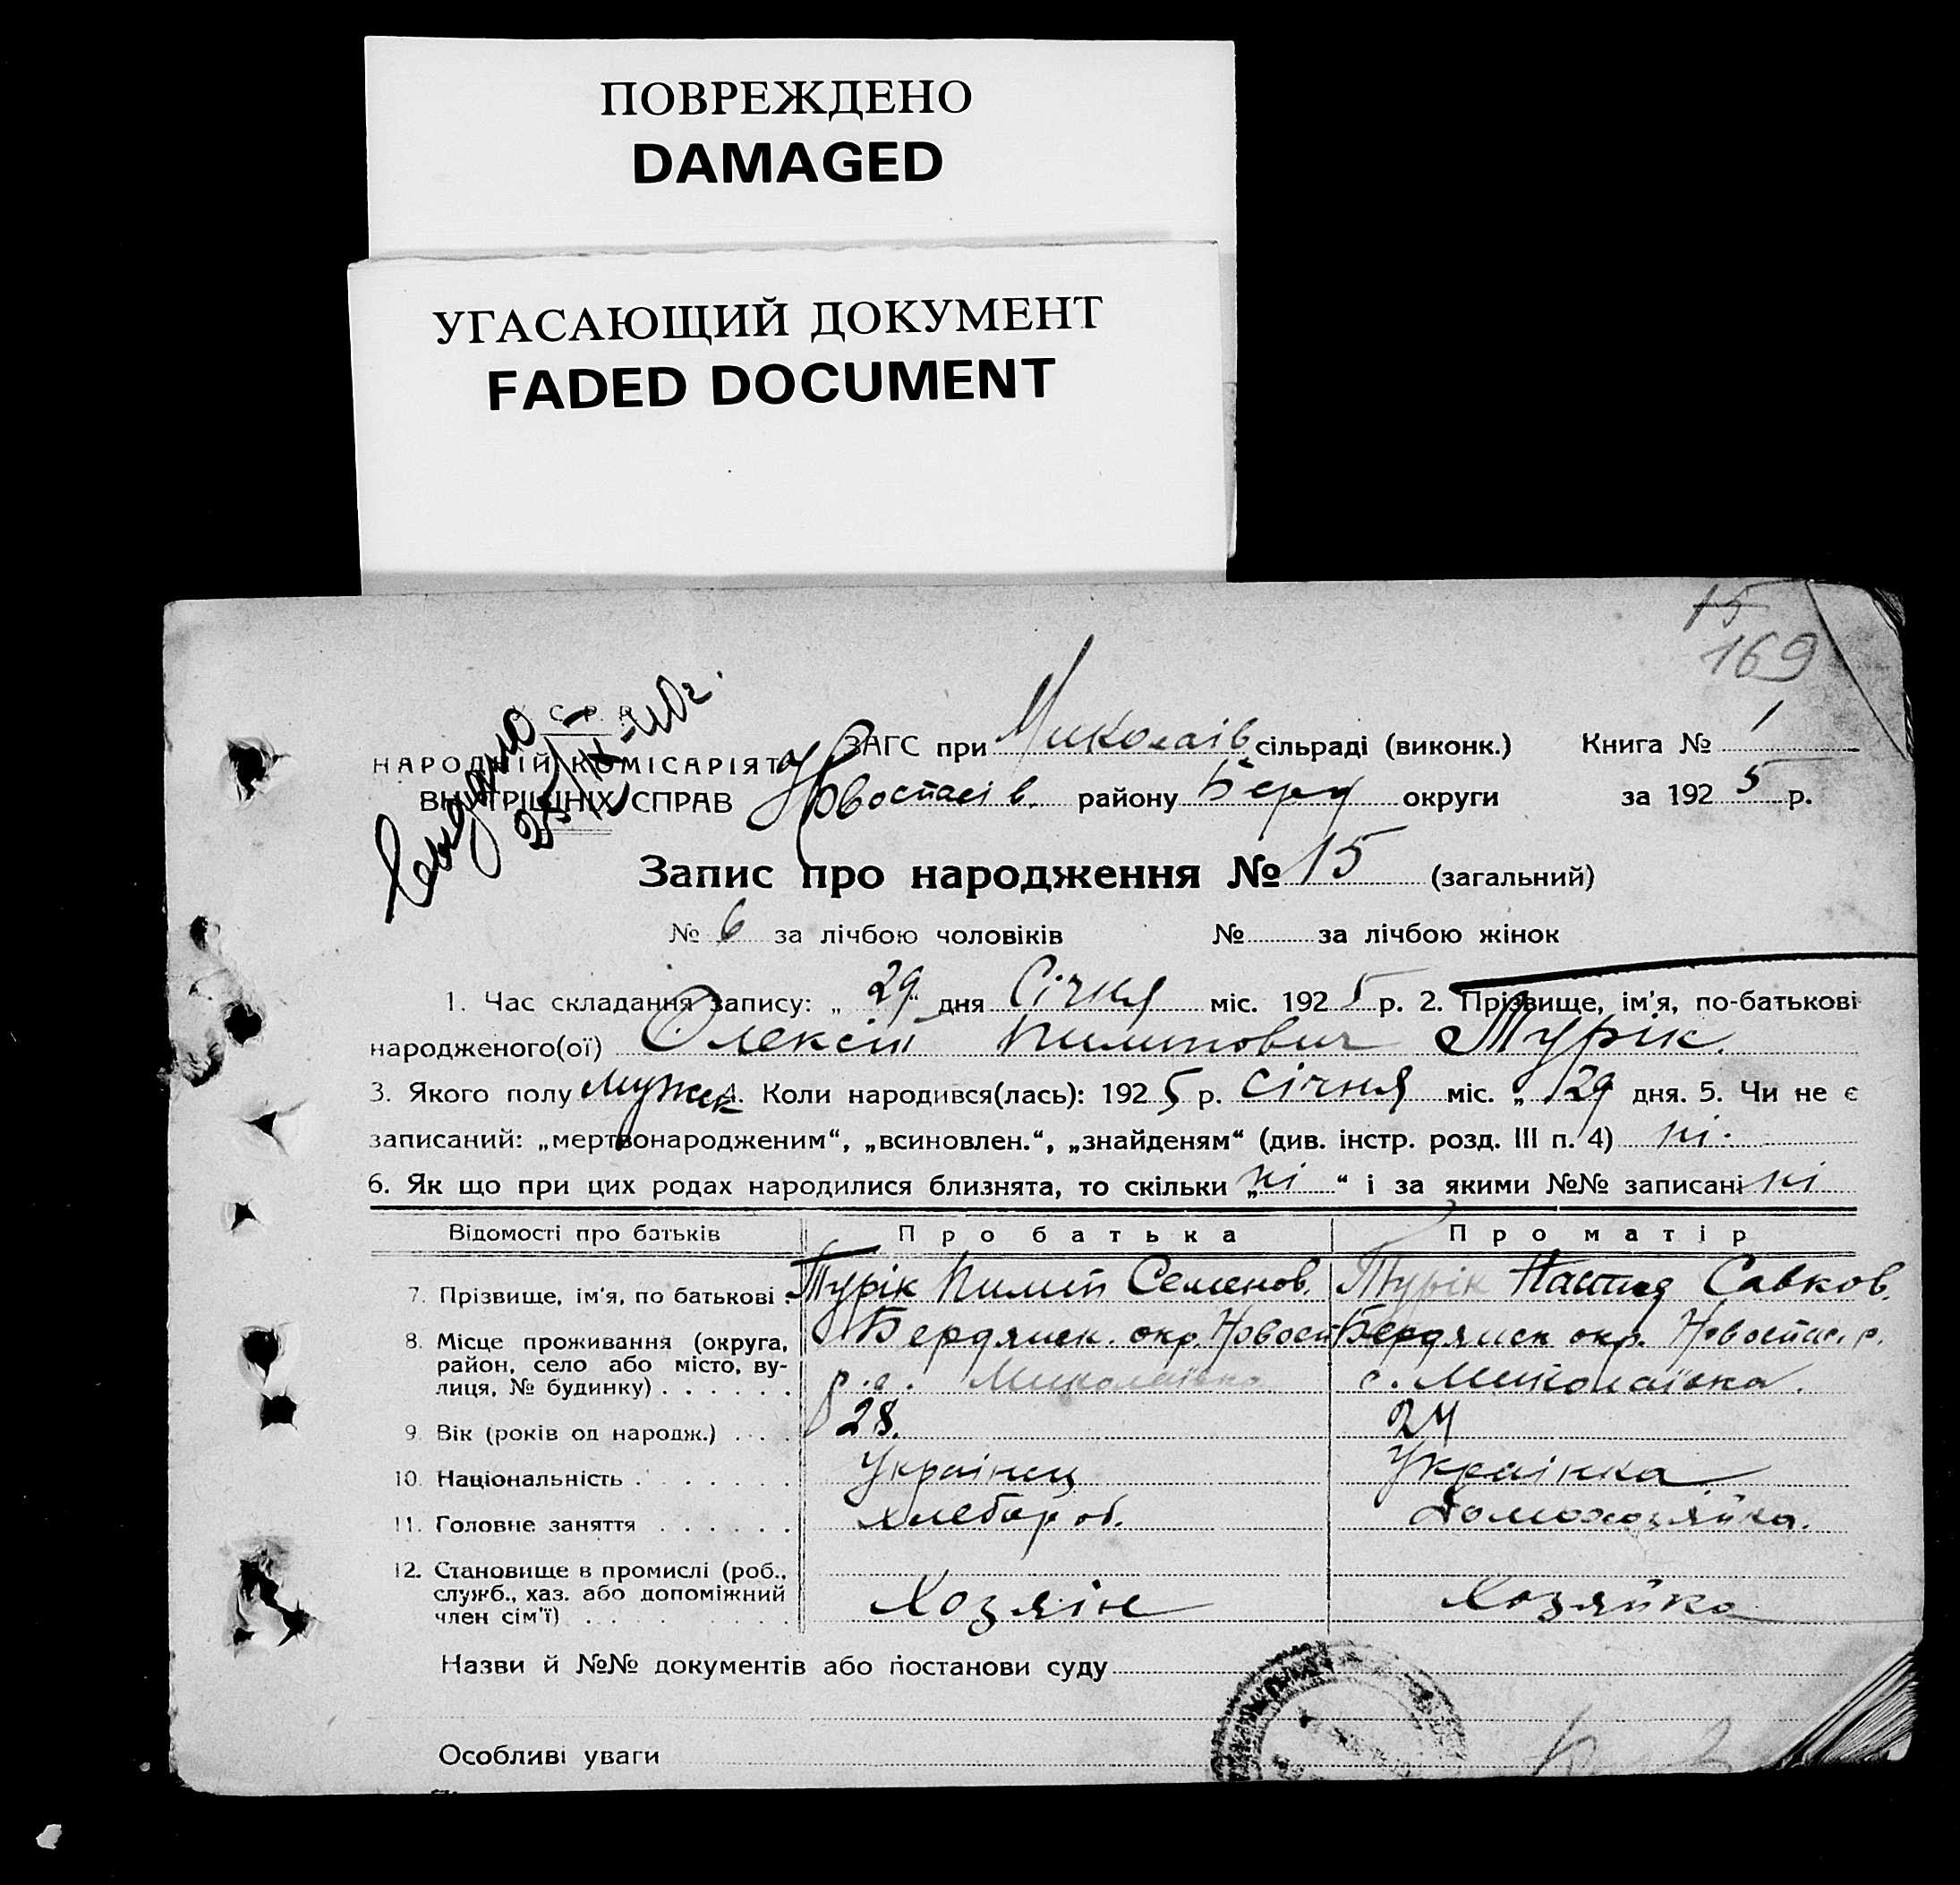 ПОВРЕЖДЕНО
DAMAGED
УГАСАЮЩИЙ ДОКУМЕНТ
FADED DOCUMENT
15
169
У С Р Р
НАРОДНІЙ КОМІСАРІЯТ
ВНУТРІШНІХ СПРАВ
ЗАГС при Миколаів сільраді (виконк.) Книга № 1
Новоспасів. району Берд округи за 1925 р.
Запис про народження № 15 (загальний)
№ 6 за лічбою чоловіків № за лічбою жінок
1. Час складання запису: „29“ дня Січня міс. 1925 р. 2. Прізвище, ім'я, по-батькові
народженого(ої) Олексій Пилипович Турік.
3. Якого полу мужск 4. Коли народився(лась): 1925 р. січня міс. „29 дня. 5. Чи не є
записаний: „мертвонародженим“, „всиновлен.“, „знайденям“ (див. інстр. розд. III п. 4) ні.
6. Як що при цих родах народилися близнята, то скільки „ні“ і за якими №№ записані ні
Відомості про батьків Про батька Про матір
7. Прізвище, ім'я, по батькові. Турік Пилип Семенов. Турік Настя Савков.
8. Місце проживання (округа, Бердянск. окр. Новосп Бердянск окр. Новоспас. р.
район, село або місто, ву-
лиця, № будинку) . . . . . . р. с. Миколаівка с. Миколаївка.
9. Вік (років од народж.) . . . 28. 24
10. Національність . . . . . . . Украінец Украінка
11. Головне заняття . . . . . . хлебороб. Домохозяйка.
12. Становище в промислі (роб.,
служб., хаз. або допоміжний
член сім'ї) . . . Хозяін Хозяйка
Назви й №№ документів або постанови суду
Особливі уваги